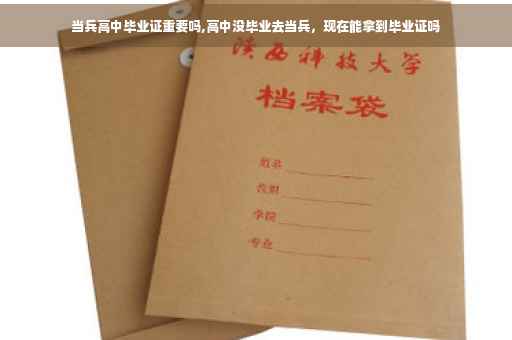 当兵高中毕业证重要吗,高中没毕业去当兵，现在能拿到毕业证吗
陕西科技大学
档案袋
姓名
学院
专业